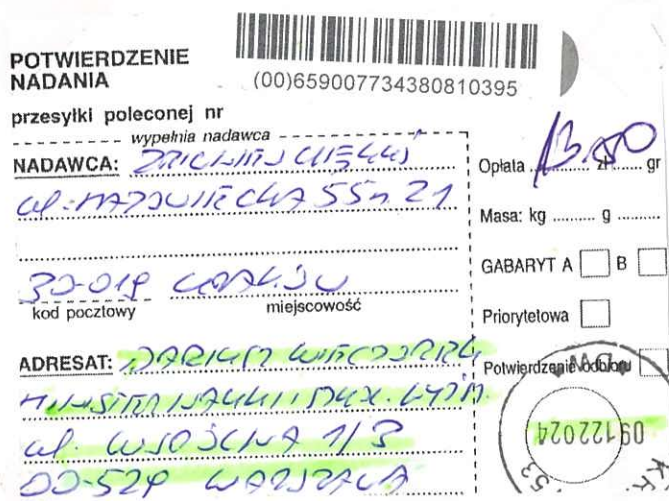 POTWIERDZENIE
NADANIA
(00)659007734380810395
przesyłki poleconej nr
wypełnia nadawca
NADAWCA:
ul. MAZOWIECKA 55 21
30-019 KRAKÓW
kod pocztowy miejscowość
ADRESAT: DARIUSZ WIECZOREK
MINISTER NAUKI I
ul. WSPÓLNA 1/3
00-529 WARSZAWA
Opłata 13.00 zł gr
Masa: kg g
GABARYT A B
Priorytetowa
Potwierdzenie odbioru
09122024
53